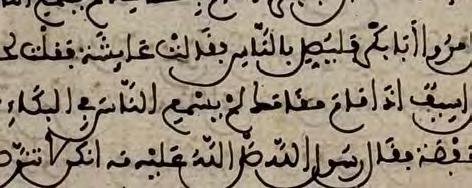 مروا أبا بكر فليصل بالناس فقالت عايشة فقلت
اسيف اذا قام مقامك لم يسمع الناس من البكاء
حفصة فقال رسول الله صلى الله عليه مه انكن لانتن